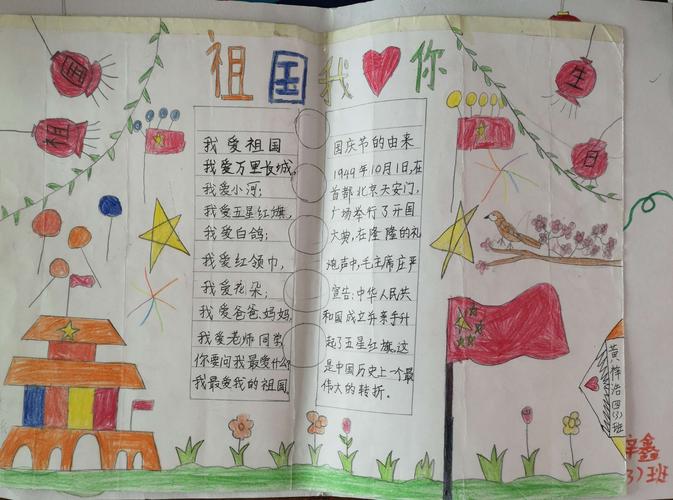 祖国我你
国
祖
生
日
我爱祖国
我爱万里长城，
我爱小河；
我爱五星红旗，
我爱白鸽；
我爱红领巾，
我爱花朵；
我爱爸爸妈妈，
我爱老师同学，
你要问我最爱什么
我最爱我的祖国。
国庆节的由来
1949年10月1日,在
首都北京天安门,
广场举行了开国
大典,在隆隆的礼
炮声中,毛主席庄严
宣告:中华人民共
和国成立并亲手升
起了五星红旗.这
是中国历史上一个最
伟大的转折.
黄梓浩四(3)班
鑫
3)班